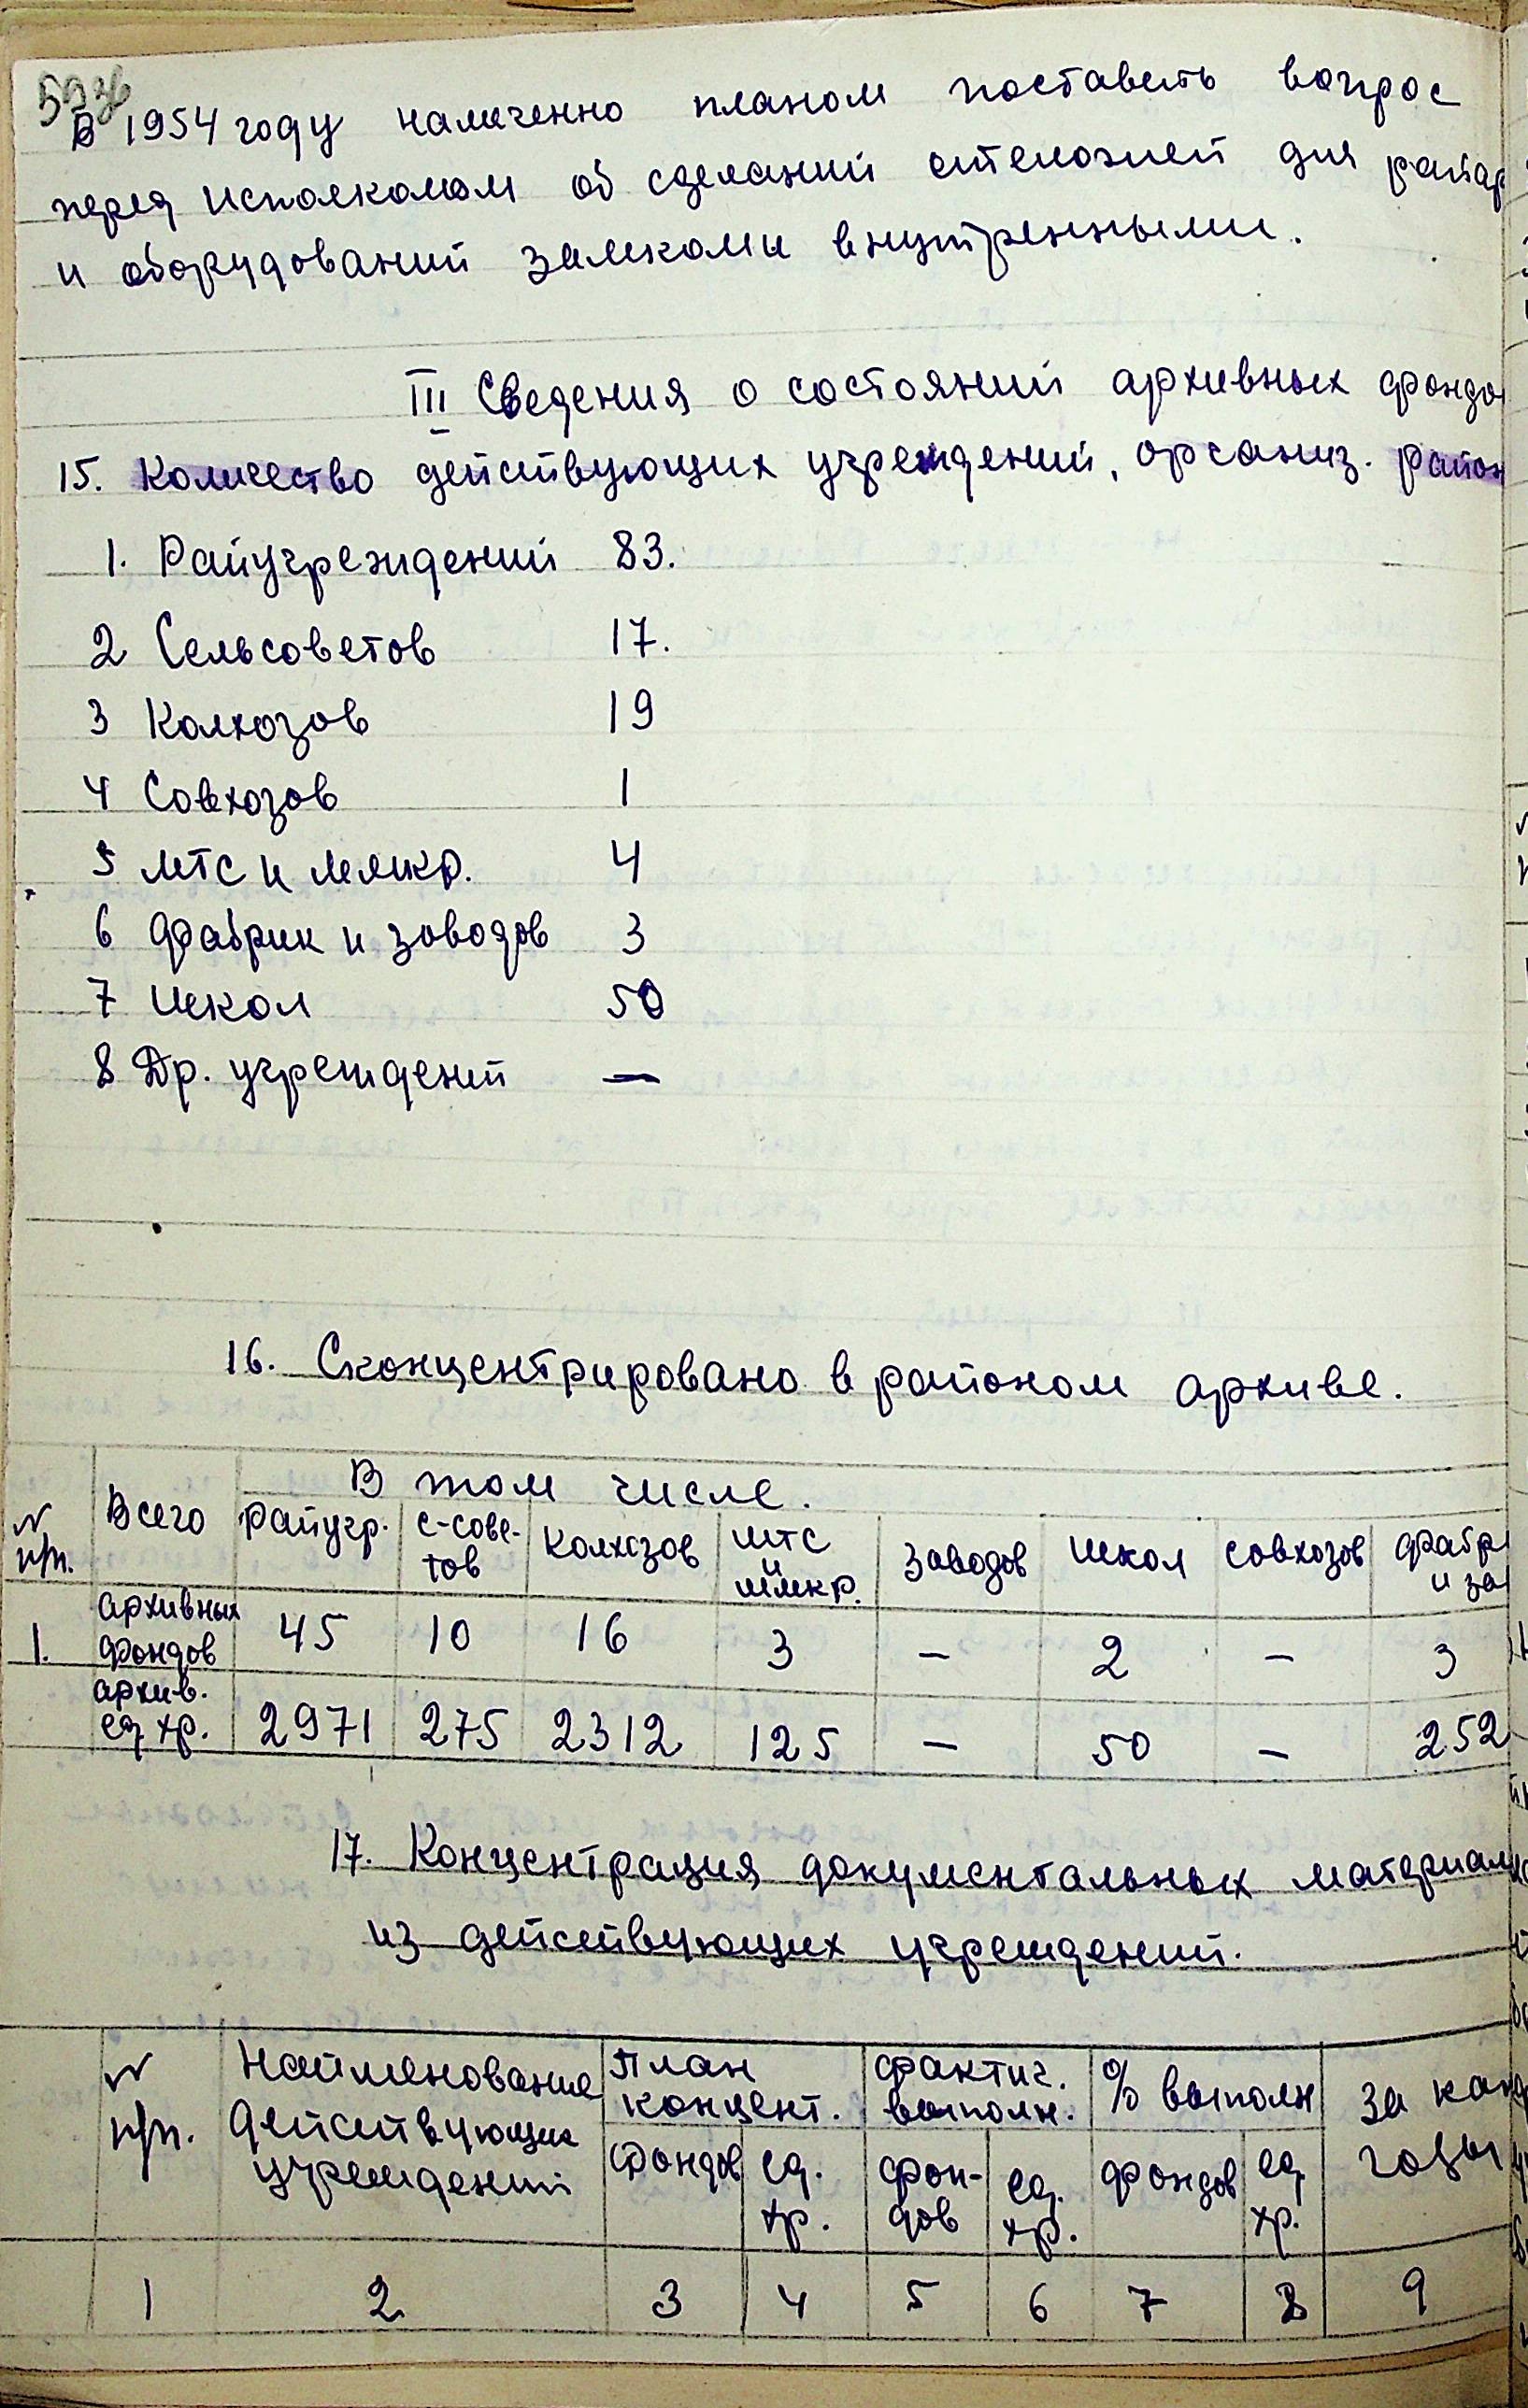 59об
В 1954 году намеченно планом поставить вопрос
перед исполкомом об сделаний стеложей для райар
и оборудований замками внутренными.
III Сведения о состояний архивных фондо
15. Количество действующих учреждений, организ. район
1. Райучреждений 83.
2 Сельсоветов 17.
3 Колхозов 19
4 Совхозов 1
5 МТС и мамкр. 4
6 Фабрик и заводов 3
7 Школ 50
8 Др. учреждений —
16. Сконцентрировано в районом архиве.
№ п/п. Всего В том числе.
Райучр. с-советов колхозов МТС и ммкр. заводов школ совхозов фабр и за
1. архивных фондов 45 10 16 3 – 2 – 3
архив. ед хр. 2971 275 2312 125 – 50 – 252
17. Концентрация документальных материал
из действующих учреждений.
№ п/п. Найменование действующих учреждений План концент. фактич. выполн. % выполн за как годы
фондов ед. хр. фондов ед. хр. фондов ед хр.
1 2 3 4 5 6 7 8 9